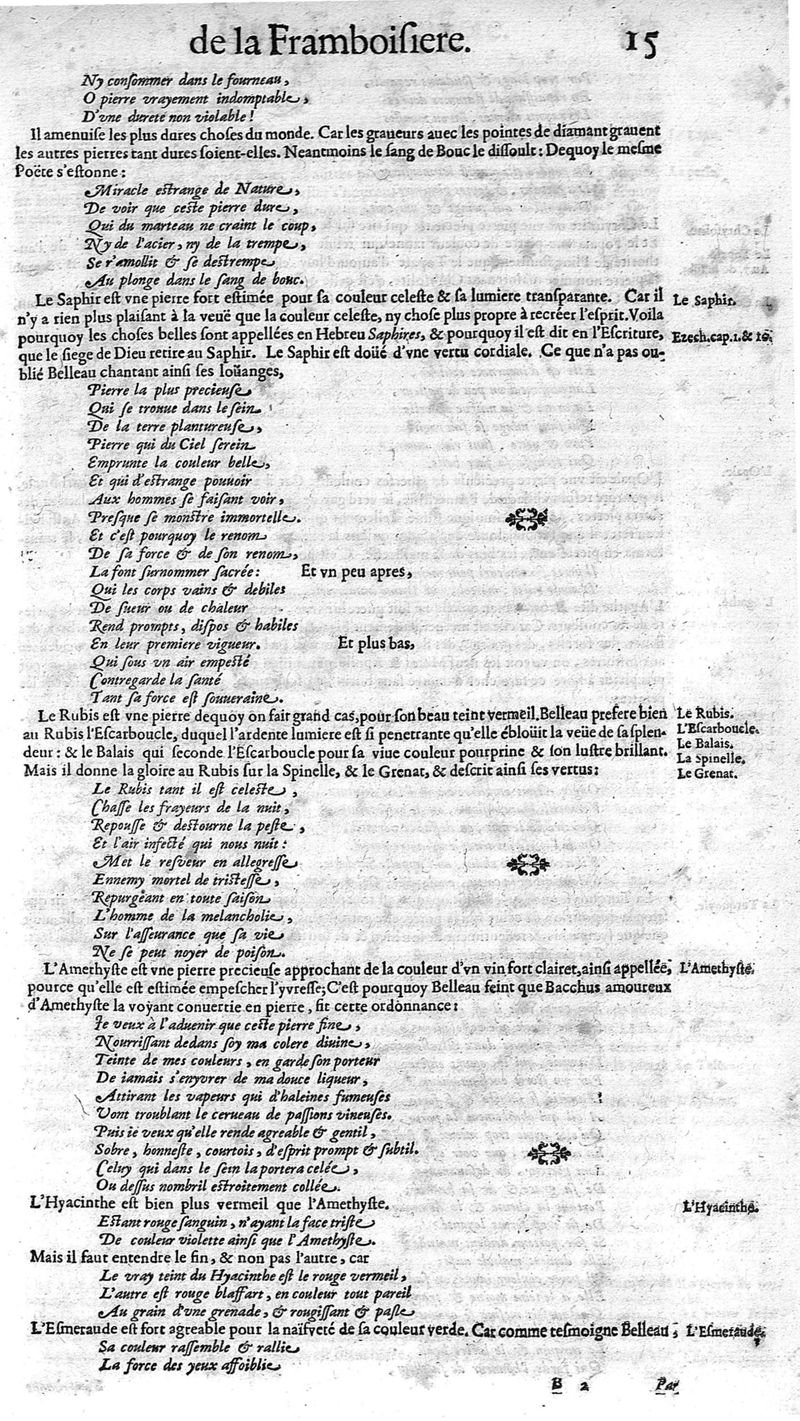 de la Framboiſiere. 15
Ny conſommer dans le fourneau,
O pierre vrayement indomptable,
D'vne dureté non violable!
Il amenuiſe les plus dures choſes du monde. Car les graueurs auec les pointes de diamant grauent
les autres pierres tant dures ſoient-elles. Neantmoins le ſang de Bouc le diſſoult: Dequoy le meſme
Poëte s'eſtonne:
Miracle eſtrange de Nature,
De voir que ceſte pierre dure,
Qui du marteau ne craint le coup,
Ny de l'acier, ny de la trempe,
Se r'amollit & ſe deſtrempe
Au plonge dans le ſang de bouc.
Le Saphir eſt vne pierre fort eſtimée pour ſa couleur celeſte & ſa lumiere tranſparante. Car il
Le Saphir.
n'y a rien plus plaiſant à la veuë que la couleur celeſte, ny choſe plus propre à recréer l'eſprit. Voila
pourquoy les choſes belles ſont appellées en Hebreu Saphires, & pourquoy il eſt dit en l'Eſcriture,
Ezech. cap. 1. & 10.
que le ſiege de Dieu retire au Saphir. Le Saphir eſt doüé d'vne vertu cordiale. Ce que n'a pas ou-
blié Belleau chantant ainſi ſes loüanges,
Pierre la plus precieuſe
Qui ſe trouue dans le ſein
De la terre plantureuſe,
Pierre qui du Ciel ſerein
Emprunte la couleur belle,
Et qui d'eſtrange pouuoir
Aux hommes ſe faiſant voir,
Preſque ſe monſtre immortelle.
Et c'eſt pourquoy le renom
De ſa force & de ſon renom,
La font ſurnommer ſacrée: Et vn peu apres,
Qui les corps vains & debiles
De ſueur ou de chaleur
Rend prompts, diſpos & habiles
En leur premiere vigueur. Et plus bas,
Qui ſous vn air empeſté
Contregarde la ſanté
Tant ſa force eſt ſouueraine.
Le Rubis eſt vne pierre dequoy on fait grand cas, pour ſon beau teint vermeil. Belleau prefere bien
Le Rubis.
au Rubis l'Eſcarboucle, duquel l'ardente lumiere eſt ſi penetrante qu'elle ébloüit la veüe de ſa ſplen-
L'Eſcarboucle.
deur: & le Balais qui ſeconde l'Eſcarboucle pour ſa viue couleur pourprine & ſon luſtre brillant.
Le Balais.
La Spinelle.
Mais il donne la gloire au Rubis ſur la Spinelle, & le Grenat, & deſcrit ainſi ſes vertus:
Le Grenat.
Le Rubis tant il eſt celeſte,
Chaſſe les frayeurs de la nuit,
Repouſſe & deſtourne la peſte,
Et l'air infecté qui nous nuit:
Met le reſveur en allegreſſe
Ennemy mortel de triſteſſe,
Repurgeant en toute ſaiſon
L'homme de la melancholie,
Sur l'aſſeurance que ſa vie
Ne ſe peut noyer de poiſon.
L'Amethyſte eſt vne pierre precieuſe approchant de la couleur d'vn vin fort clairet, ainſi appellée,
L'Amethyſte.
pource qu'elle eſt eſtimée empeſcher l'yvreſſe; C'eſt pourquoy Belleau feint que Bacchus amoureux
d'Amethyſte la voyant conuertie en pierre, fit cette ordonnance:
Ie veux à l'aduenir que ceſte pierre fine,
Nourriſſant dedans ſoy ma colere diuine,
Teinte de mes couleurs, en garde ſon porteur
De iamais s'enyvrer de ma douce liqueur,
Attirant les vapeurs qui d'haleines fumeuſes
Vont troublant le cerueau de paſſions vineuſes.
Puis ie veux qu'elle rende agreable & gentil,
Sobre, honneſte, courtois, d'eſprit prompt & ſubtil.
Celuy qui dans le ſein la portera celée,
Ou deſſus nombril eſtroitement collée.
L'Hyacinthe eſt bien plus vermeil que l'Amethyſte.
L'Hyacinthe.
Eſtant rouge ſanguin, n'ayant la face triſte
De couleur violette ainſi que l'Amethyſte.
Mais il faut entendre le fin, & non pas l'autre, car
Le vray teint du Hyacinthe eſt le rouge vermeil,
L'autre eſt rouge blaffart, en couleur tout pareil
Au grain d'vne grenade, & rougiſſant & paſle
L'Eſmeraude eſt fort agreable pour la naïſveté de ſa couleur verde. Car comme teſmoigne Belleau,
L'Eſmeraude.
Sa couleur raſſemble & rallie
La force des yeux affoiblie
B 2 Par